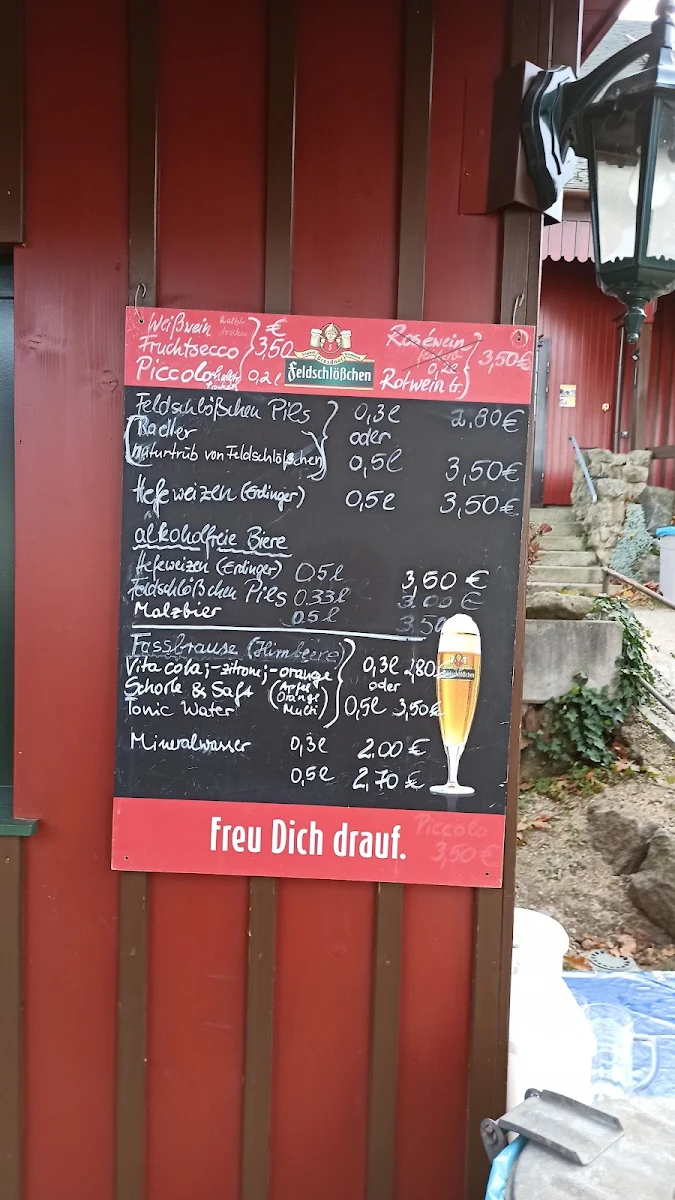 Weißwein halbtr. trocken € Roséwein
Fruchtsecco 3,50 feinherb 3,50€
Piccolo halbtr. trocken 0,2 l 0,2l
Rotwein tr.
Dresdner
Feldschlößchen
Feldschlößchen Pils 0,3l 2,80€
Radler oder
Naturtrüb von Feldschlößchen 0,5l 3,50€
Hefeweizen (Erdinger) 0,5l 3,50€
alkoholfreie Biere
Hefeweizen (Erdinger) 0,5l 3,50 €
Feldschlößchen Pils 0.33l 3.00 €
Malzbier 0.5l 3,50
Fassbrause (Himbeere)
Vita cola; -zitrone; -orange 0,3l 2,80€
Schorle & Saft (Apfel Orange Multi) oder
Tonic Water 0,5l 3,50€
Feldschlößchen
Mineralwasser 0,3l 2.00 €
0,5l 2,70 €
Freu Dich drauf.
Piccolo
3,50 €